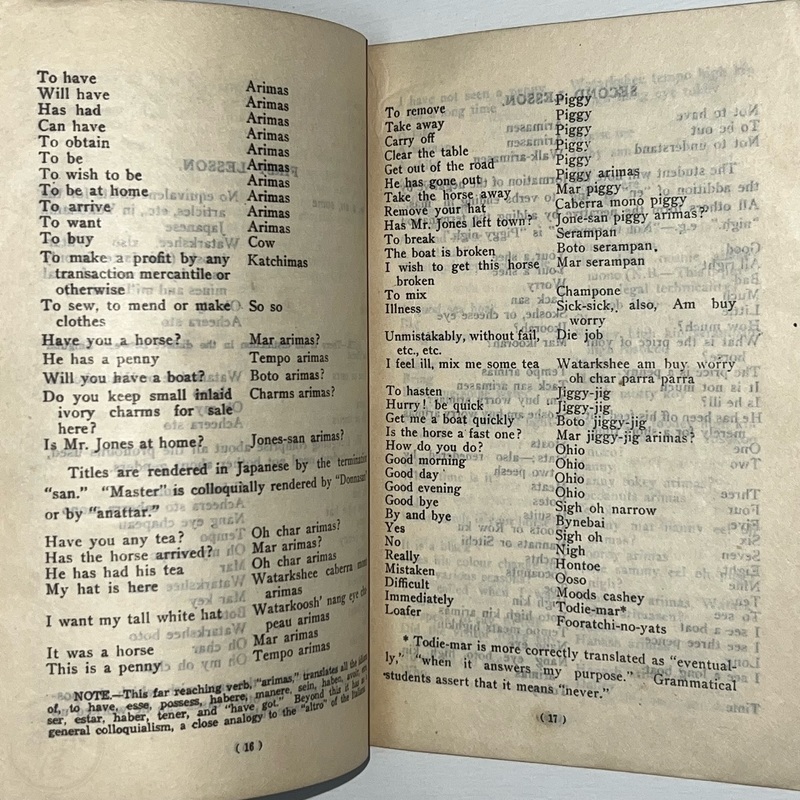 To have Arimas
Will have Arimas
Has had Arimas
Can have Arimas
To obtain Arimas
To be Arimas
To wish to be Arimas
To be at home Arimas
To arrive Arimas
To want Arimas
To buy Cow
To make a profit by any Katchimas
transaction mercantile or
otherwise
To sew, to mend or make So so
clothes
Have you a horse? Mar arimas?
He has a penny Tempo arimas
Will you have a boat? Boto arimas?
Do you keep small inlaid Charms arimas?
ivory charms for sale
here?
Is Mr. Jones at home? Jones-san arimas?
Titles are rendered in Japanese by the
"san." "Master" is colloquially rendered by
or by "anattar."
Have you any tea? Oh char arimas?
Has the horse arrived? Mar arimas?
He has had his tea Oh char arimas
My hat is here Watarkshee caberra mono
arimas
I want my tall white hat Watarkoosh' nang eye
peau arimas
It was a horse Mar arimas
This is a penny Tempo arimas
NOTE.—This far reaching verb, "arimas," translates all the
of, to have, esse, possess, habere, manere, sein, haben, avoir,
ser, estar, haber, tener, and "have got." Beyond this it has
general colloquialism, a close analogy to the "altro" of the Italian
( 16 )
To remove Piggy
Take away Piggy
Carry off Piggy
Clear the table Piggy
Get out of the road Piggy
He has gone out Piggy arimas
Take the horse away Mar piggy
Remove your hat Caberra mono piggy
Has Mr. Jones left town? Jone-san piggy arimas?
To break Serampan
The boat is broken Boto serampan.
I wish to get this horse Mar serampan
broken
To mix Champone
Illness Sick-sick, also, Am buy
worry
Unmistakably, without fail, Die job
etc., etc.
I feel ill, mix me some tea Watarkshee am buy worry
oh char parra parra
To hasten Jiggy-jig
Hurry! be quick Jiggy-jig
Get me a boat quickly Boto jiggy-jig
Is the horse a fast one? Mar jiggy-jig arimas?
How do you do? Ohio
Good morning Ohio
Good day Ohio
Good evening Ohio
Good bye Sigh oh narrow
By and bye Bynebai
Yes Sigh oh
No Nigh
Really Hontoe
Mistaken Ooso
Difficult Moods cashey
Immediately Todie-mar*
Loafer Fooratchi-no-yats
* Todie-mar is more correctly translated as "eventual-
ly," "when it answers my purpose." Grammatical
students assert that it means "never."
( 17 )